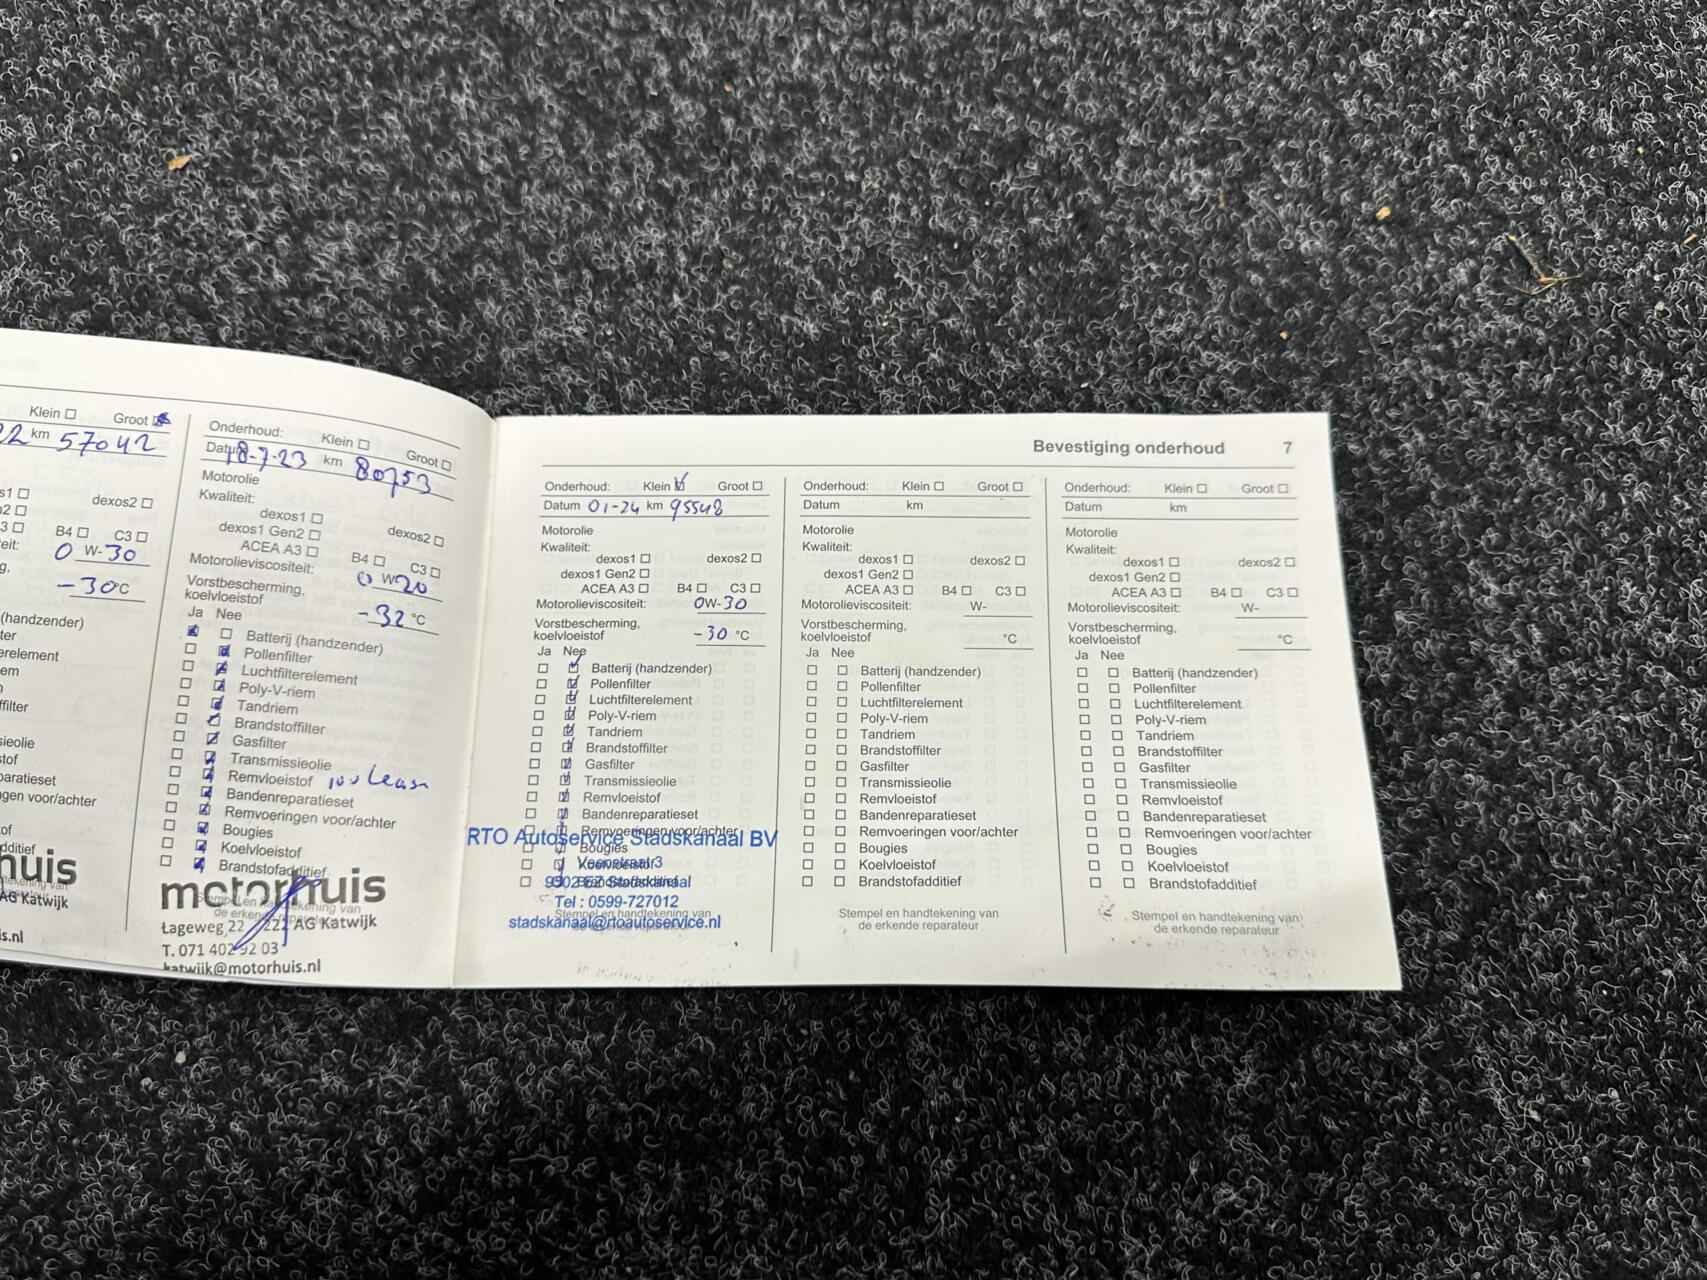 Klein Groot
km 57042
dexos2
B4 C3
0 W-30
-30 °C
(handzender)
AG Katwijk
Onderhoud: Klein Groot
Datum 18-7-23 km 80753
Motorolie
Kwaliteit:
dexos1 dexos2
dexos1 Gen2
ACEA A3 B4 C3
Motorolieviscositeit: 0 W 20
Vorstbescherming,
koelvloeistof -32 °C
Ja Nee
Batterij (handzender)
Pollenfilter
Luchtfilterelement
Poly-V-riem
Tandriem
Brandstoffilter
Gasfilter
Transmissieolie
Remvloeistof
Bandenreparatieset
Remvoeringen voor/achter
Bougies
Koelvloeistof
Brandstofadditief
motorhuis
Stempel en handtekening van
de erkende reparateur
Lageweg 22 AG Katwijk
T. 071 402 92 03
katwijk@motorhuis.nl
Bevestiging onderhoud 7
Onderhoud: Klein Groot
Datum 01-24 km 95548
Motorolie
Kwaliteit:
dexos1 dexos2
dexos1 Gen2
ACEA A3 B4 C3
Motorolieviscositeit: 0W-30
Vorstbescherming,
koelvloeistof -30 °C
Ja Nee
Batterij (handzender)
Pollenfilter
Luchtfilterelement
Poly-V-riem
Tandriem
Brandstoffilter
Gasfilter
Transmissieolie
Remvloeistof
Bandenreparatieset
Remvoeringen voor/achter
RTO Autoservice Stadskanaal BV
Bougies
Koelvloeistof
Brandstofadditief
Stadskanaal
Tel : 0599-727012
Stempel en handtekening van
de erkende reparateur
stadskanaal@rtoautoservice.nl
Onderhoud: Klein Groot
Datum km
Motorolie
Kwaliteit:
dexos1 dexos2
dexos1 Gen2
ACEA A3 B4 C3
Motorolieviscositeit: W-
Vorstbescherming,
koelvloeistof °C
Ja Nee
Batterij (handzender)
Pollenfilter
Luchtfilterelement
Poly-V-riem
Tandriem
Brandstoffilter
Gasfilter
Transmissieolie
Remvloeistof
Bandenreparatieset
Remvoeringen voor/achter
Bougies
Koelvloeistof
Brandstofadditief
Stempel en handtekening van
de erkende reparateur
Onderhoud: Klein Groot
Datum km
Motorolie
Kwaliteit:
dexos1 dexos2
dexos1 Gen2
ACEA A3 B4 C3
Motorolieviscositeit: W-
Vorstbescherming,
koelvloeistof °C
Ja Nee
Batterij (handzender)
Pollenfilter
Luchtfilterelement
Poly-V-riem
Tandriem
Brandstoffilter
Gasfilter
Transmissieolie
Remvloeistof
Bandenreparatieset
Remvoeringen voor/achter
Bougies
Koelvloeistof
Brandstofadditief
Stempel en handtekening van
de erkende reparateur